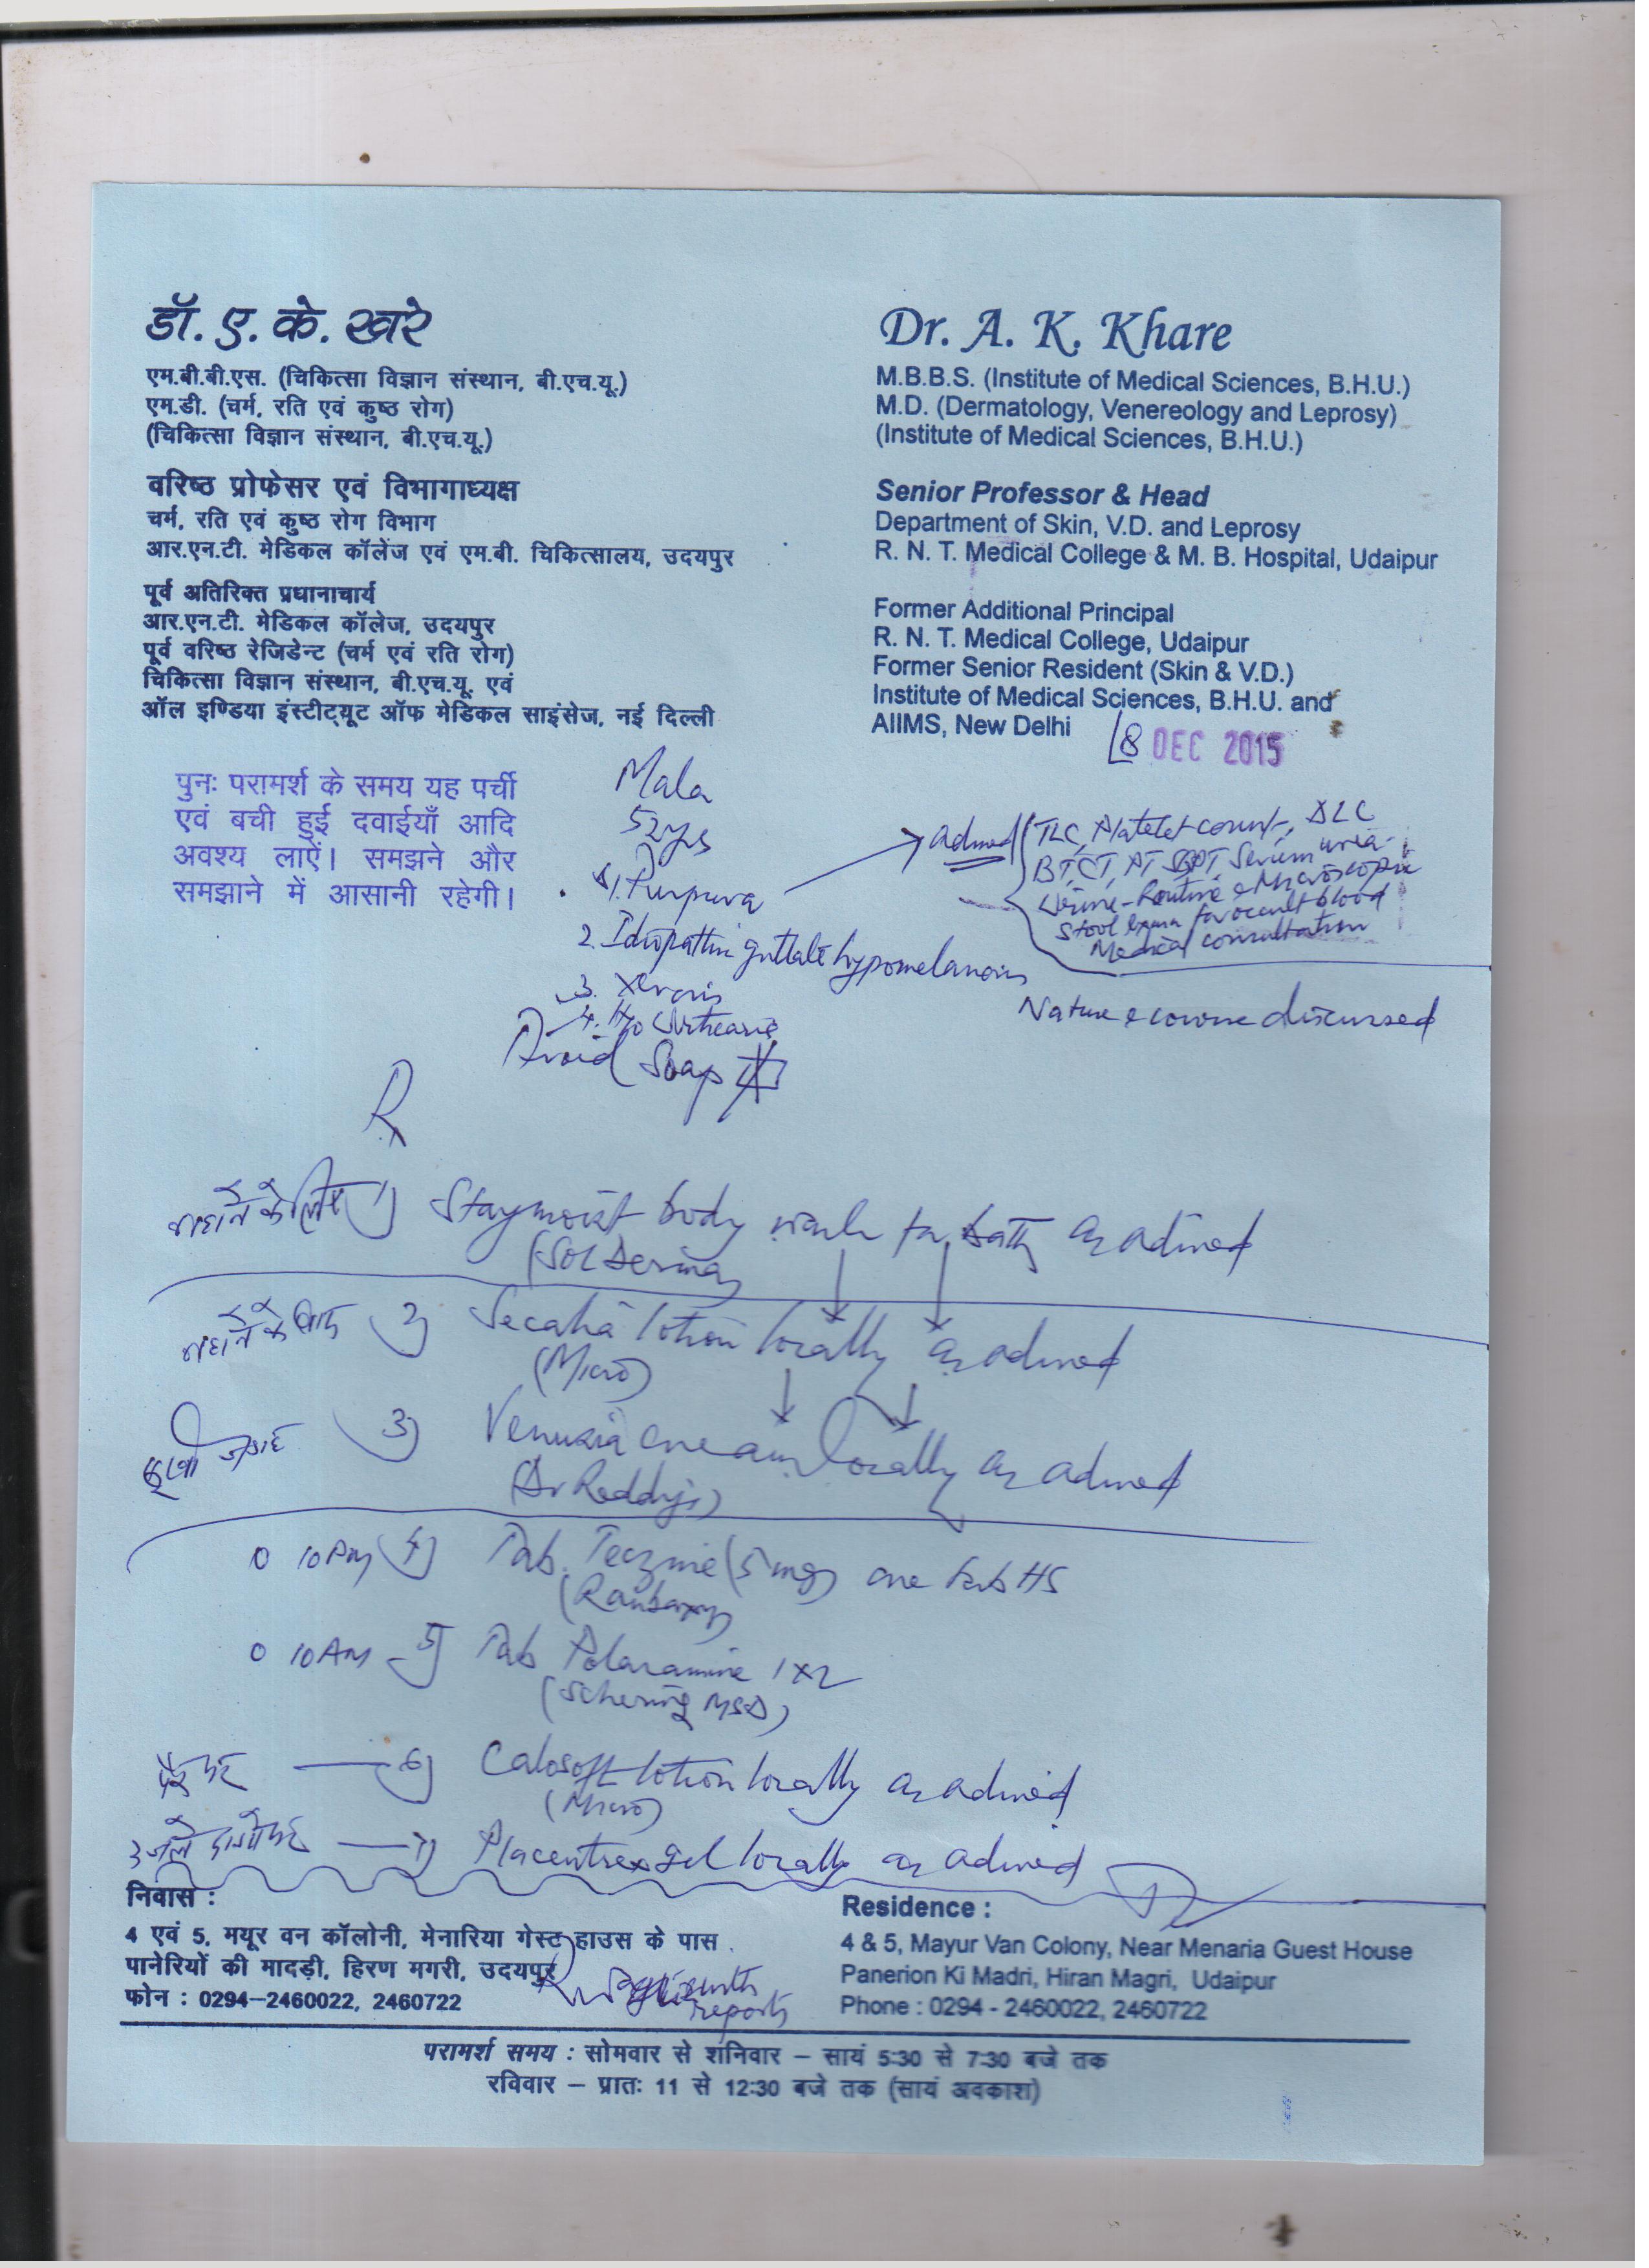 डॉ. ए. के. खरे
एम.बी.बी.एस. (चिकित्सा विज्ञान संस्थान, बी.एच.यू.)
एम.डी. (चर्म, रति एवं कुष्ठ रोग)
(चिकित्सा विज्ञान संस्थान, बी.एच.यू.)
वरिष्ठ प्रोफेसर एवं विभागाध्यक्ष
चर्म, रति एवं कुष्ठ रोग विभाग
आर.एन.टी. मेडिकल कॉलेज एवं एम.बी. चिकित्सालय, उदयपुर
पूर्व अतिरिक्त प्रधानाचार्य
आर.एन.टी. मेडिकल कॉलेज, उदयपुर
पूर्व वरिष्ठ रेजिडेन्ट (चर्म एवं रति रोग)
चिकित्सा विज्ञान संस्थान, बी.एच.यू. एवं
ऑल इण्डिया इंस्टीट्यूट ऑफ मेडिकल साइंसेज, नई दिल्ली
Dr. A. K. Khare
M.B.B.S. (Institute of Medical Sciences, B.H.U.)
M.D. (Dermatology, Venereology and Leprosy)
(Institute of Medical Sciences, B.H.U.)
Senior Professor & Head
Department of Skin, V.D. and Leprosy
R. N. T. Medical College & M. B. Hospital, Udaipur
Former Additional Principal
R. N. T. Medical College, Udaipur
Former Senior Resident (Skin & V.D.)
Institute of Medical Sciences, B.H.U. and
AIIMS, New Delhi
18 DEC 2015
पुनः परामर्श के समय यह पर्ची
एवं बची हुई दवाईयाँ आदि
अवश्य लाऐं। समझने और
समझाने में आसानी रहेगी।
Mala
52yrs
1. Purpura
2. Idiopathic guttate hypomelanosis
3. Xerosis
4. H/o Urticaria
Avoid Soap
Advised TLC, Platelet count, DLC
BT, CT, PT SGPT, Serum urea
Urine-Routine & Microscopic
Stool Exam for occult blood
Medical consultation
Nature & course discussed
Rx
नहाने के लिए 1) Staymoist body wash for bath as advised
(Sol Derma)
नहाने के बाद 2) Secalia lotion locally as advised
(Micro)
सूखी जगह 3) Venusia cream locally as advised
(Dr Reddy's)
0 10PM 4) Tab. Teczine (5mg) one tab HS
(Ranbaxy)
0 10AM 5) Tab Polaramine 1x2
(Schering MSD)
6) Calosoft lotion locally as advised
(Micro)
7) Placentrex gel locally as advised
निवास :
4 एवं 5, मयूर वन कॉलोनी, मेनारिया गेस्ट हाउस के पास
पानेरियों की मादड़ी, हिरण मगरी, उदयपुर
फोन : 0294-2460022, 2460722
with
reports
Residence :
4 & 5, Mayur Van Colony, Near Menaria Guest House
Panerion Ki Madri, Hiran Magri, Udaipur
Phone : 0294 - 2460022, 2460722
परामर्श समय : सोमवार से शनिवार – सायं 5:30 से 7:30 बजे तक
रविवार – प्रातः 11 से 12:30 बजे तक (सायं अवकाश)